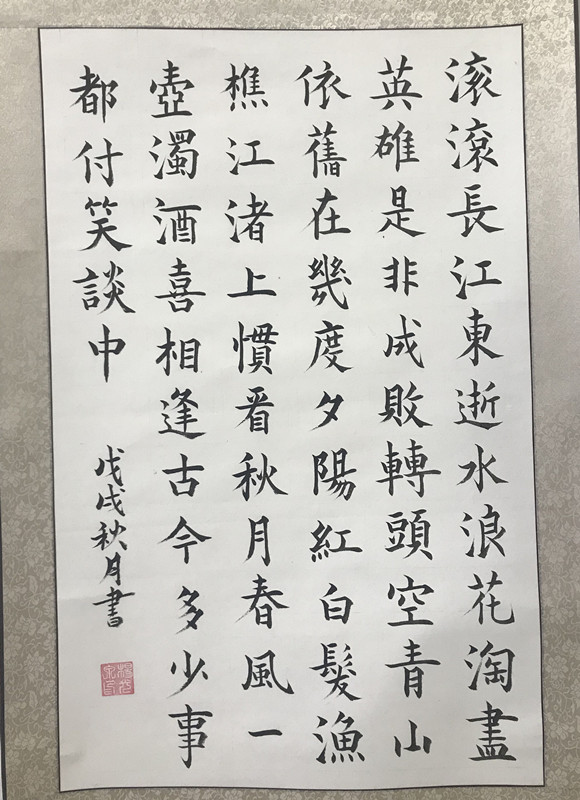 滚滾長江東逝水浪花淘盡
英雄是非成敗轉頭空青山
依舊在幾度夕陽紅白髮漁
樵江渚上慣看秋月春風一
壺濁酒喜相逢古今多少事
都付笑談中
戊戌秋月書